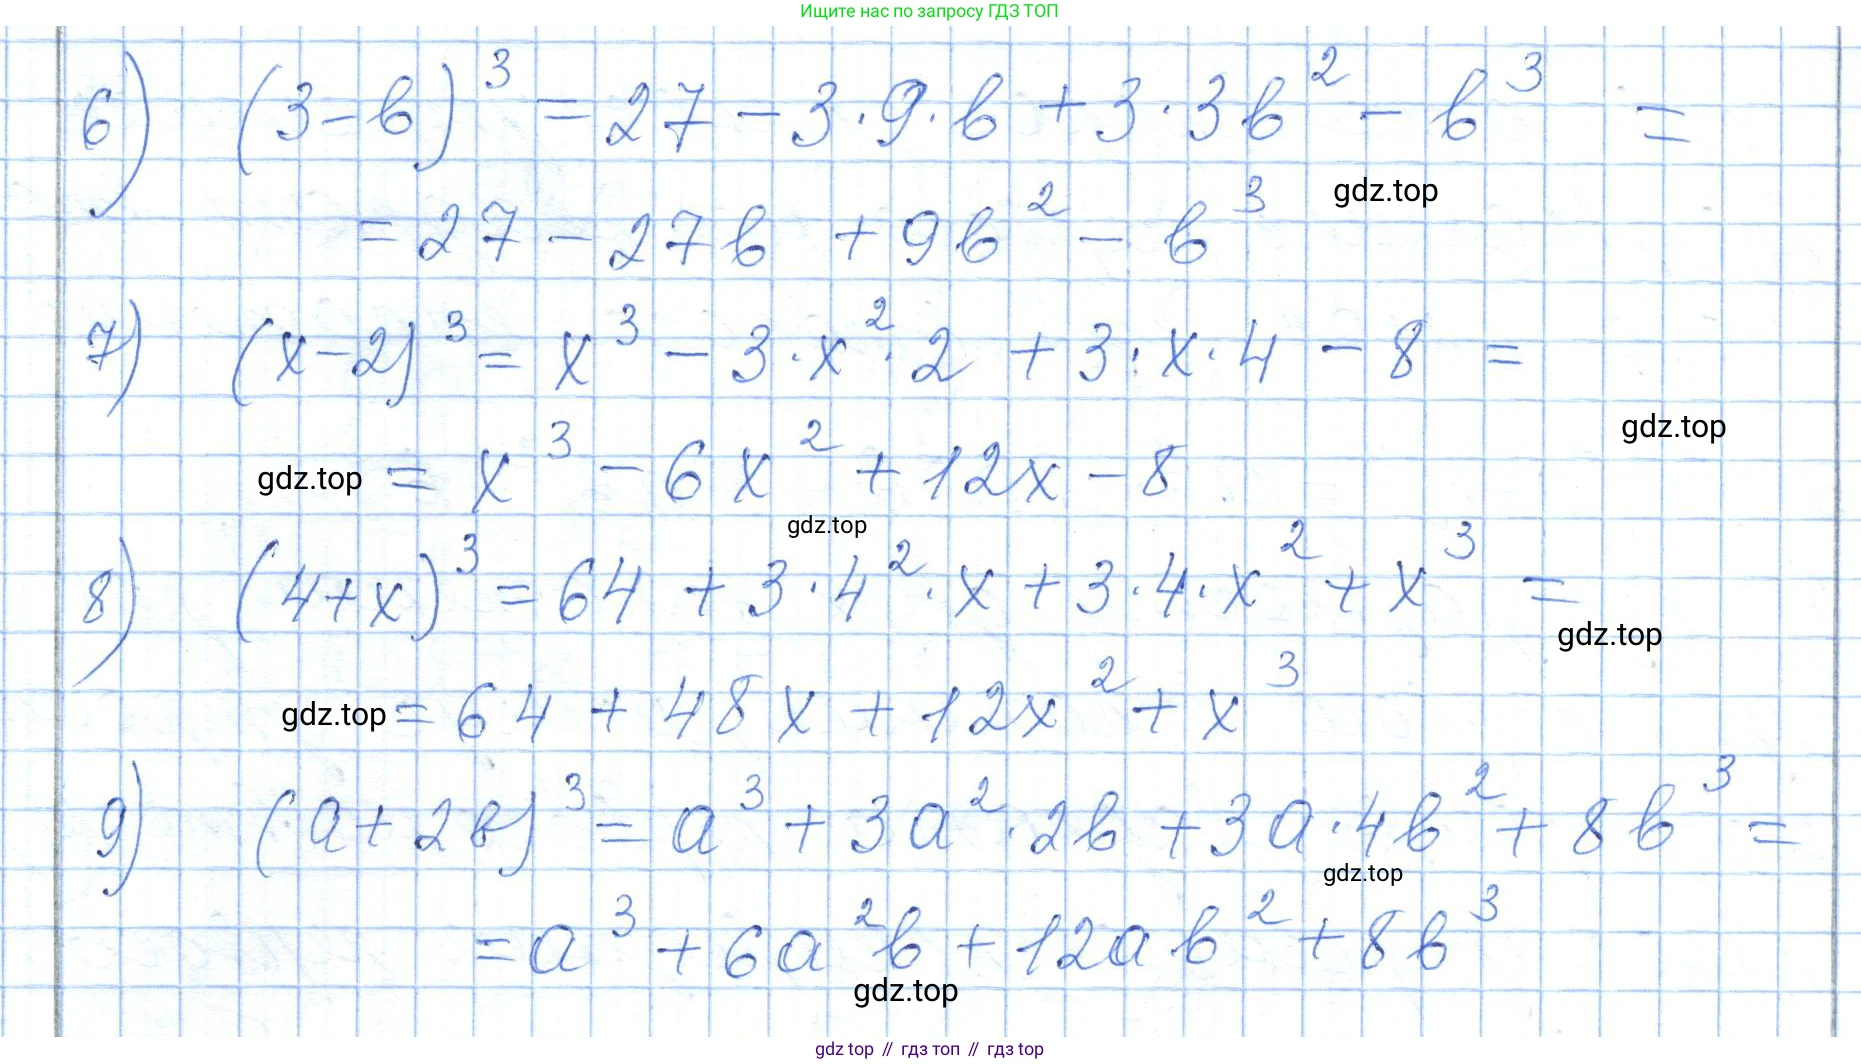 Ищите нас по запросу ГДЗ ТОП
6) (3-b)³ = 27 - 3·9·b + 3·3b² - b³ =
gdz.top
= 27 - 27b + 9b² - b³
7) (x-2)³ = x³ - 3·x²·2 + 3·x·4 - 8 =
gdz.top
gdz.top = x³ - 6x² + 12x - 8
gdz.top
8) (4+x)³ = 64 + 3·4²·x + 3·4·x² + x³ =
gdz.top
gdz.top = 64 + 48x + 12x² + x³
9) (a+2b)³ = a³ + 3a²·2b + 3a·4b² + 8b³ =
gdz.top
= a³ + 6a²b + 12ab² + 8b³
gdz.top
gdz top // гдз топ // гдз top